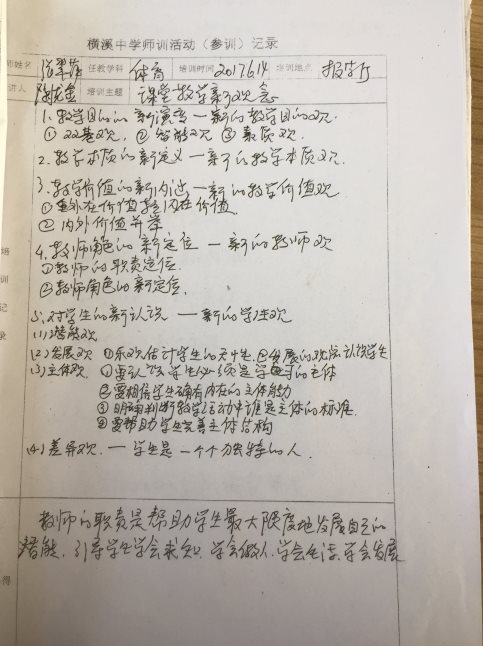 横溪中学师训活动（参训）记录
师姓名 任教学科 体育 培训时间 2017.6.14 培训地点 报告厅
讲人 培训主题 课堂教学新观念
1.教学目的的新演变—新的教学目的观
①双基观. ②智能观 ③素质观.
2.教学本质的新定义—新的教学本质观.
3.教学价值的新内述—新的教学价值观
①重外在价值轻内在价值.
②内外价值并举
4.教师角色的新定位—新的教师观
①教师的职责定位.
②教师角色的新定位.
5.对学生的新认识—新的学生观
(1)潜能观
(2)发展观 ①乐观估计学生的天性.②发展的观点认识学生
(3)主体观. ①要认识学生必须是学习的主体
②要相信学生确有内在的主体能力
③明确判断教学活动中谁是主体的标准.
④要帮助学生完善主体结构
(4)差异观.—学生是一个个独特的人.
培
训
记
录
教师的职责是帮助学生最大限度地发展自己的
潜能.引导学生学会求知.学会做人.学会生活.学会发展
得